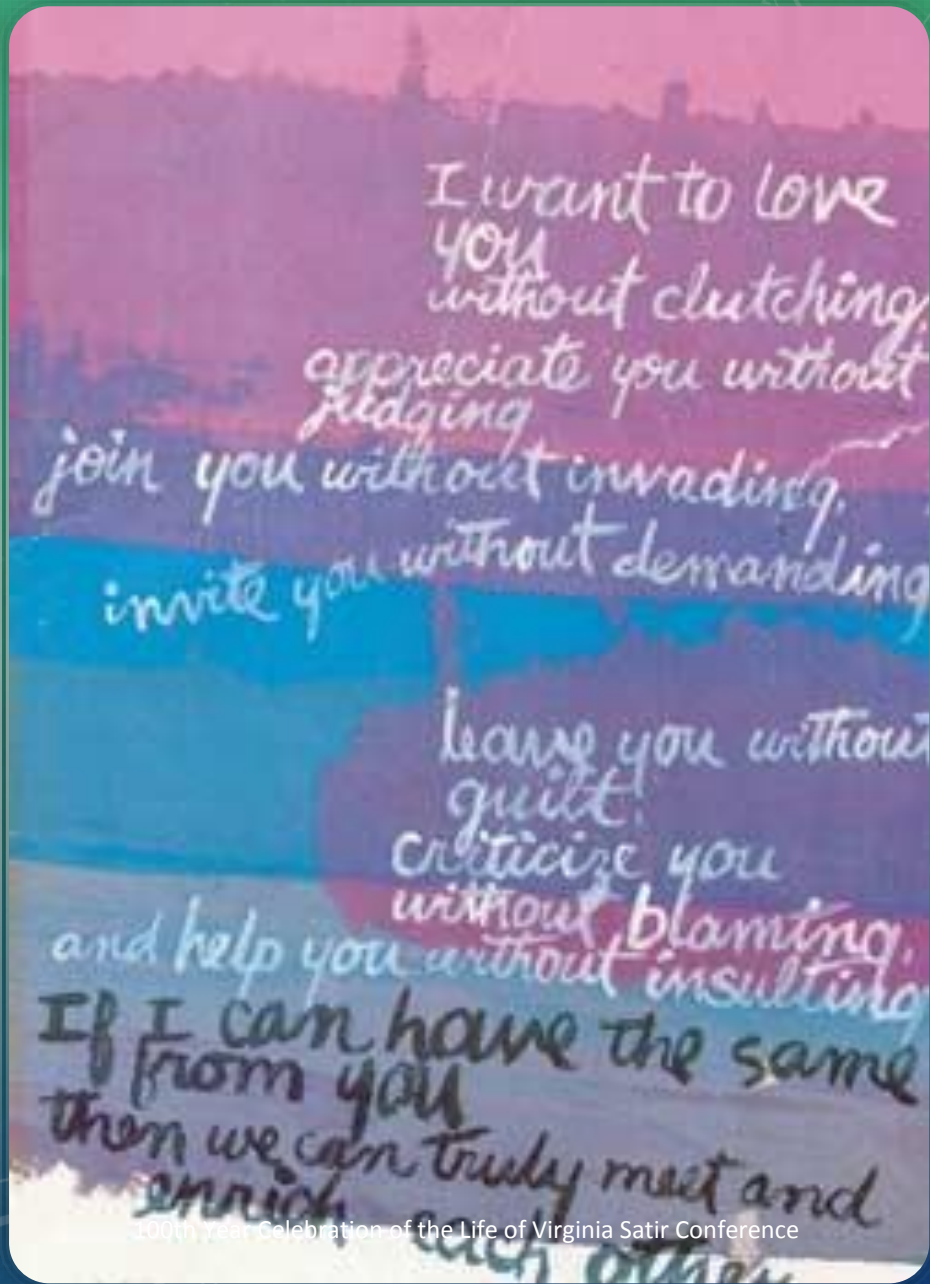 I want to love
you
without clutching,
appreciate you without
judging
join you without invading,
invite you without demanding
leave you without
guilt,
criticize you
without blaming,
and help you without insulting
If I can have the same
from you
then we can truly meet and
enrich each other
100th Year Celebration of the Life of Virginia Satir Conference